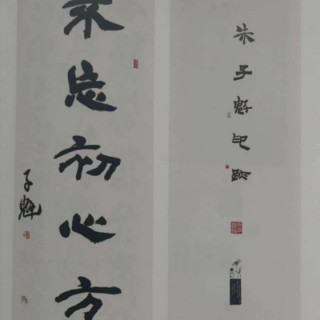 朱子魁印
忘初心方
子魁